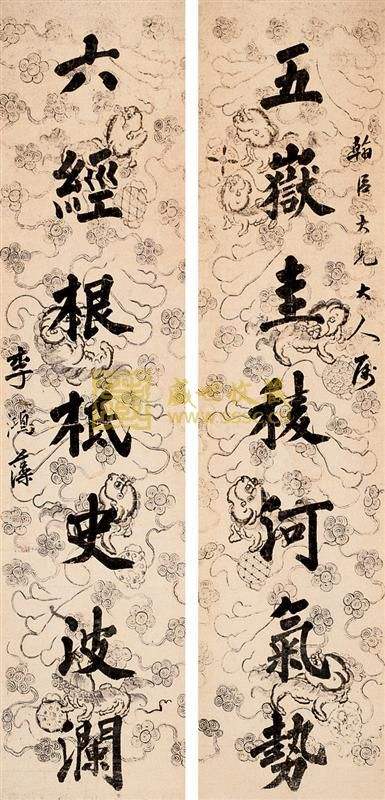 翰臣大兄大人属
五嶽圭稜河氣勢
六經根柢史波瀾
李鴻藻
盛世收藏